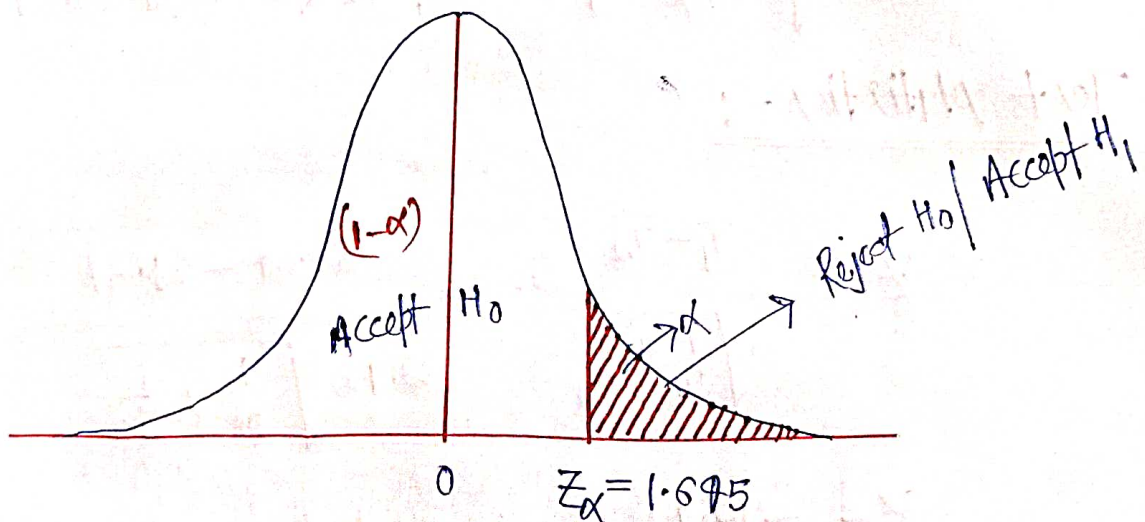 (1-α)
Accept H₀
α
Reject H₀ / Accept H₁
0
Z_α = 1.645